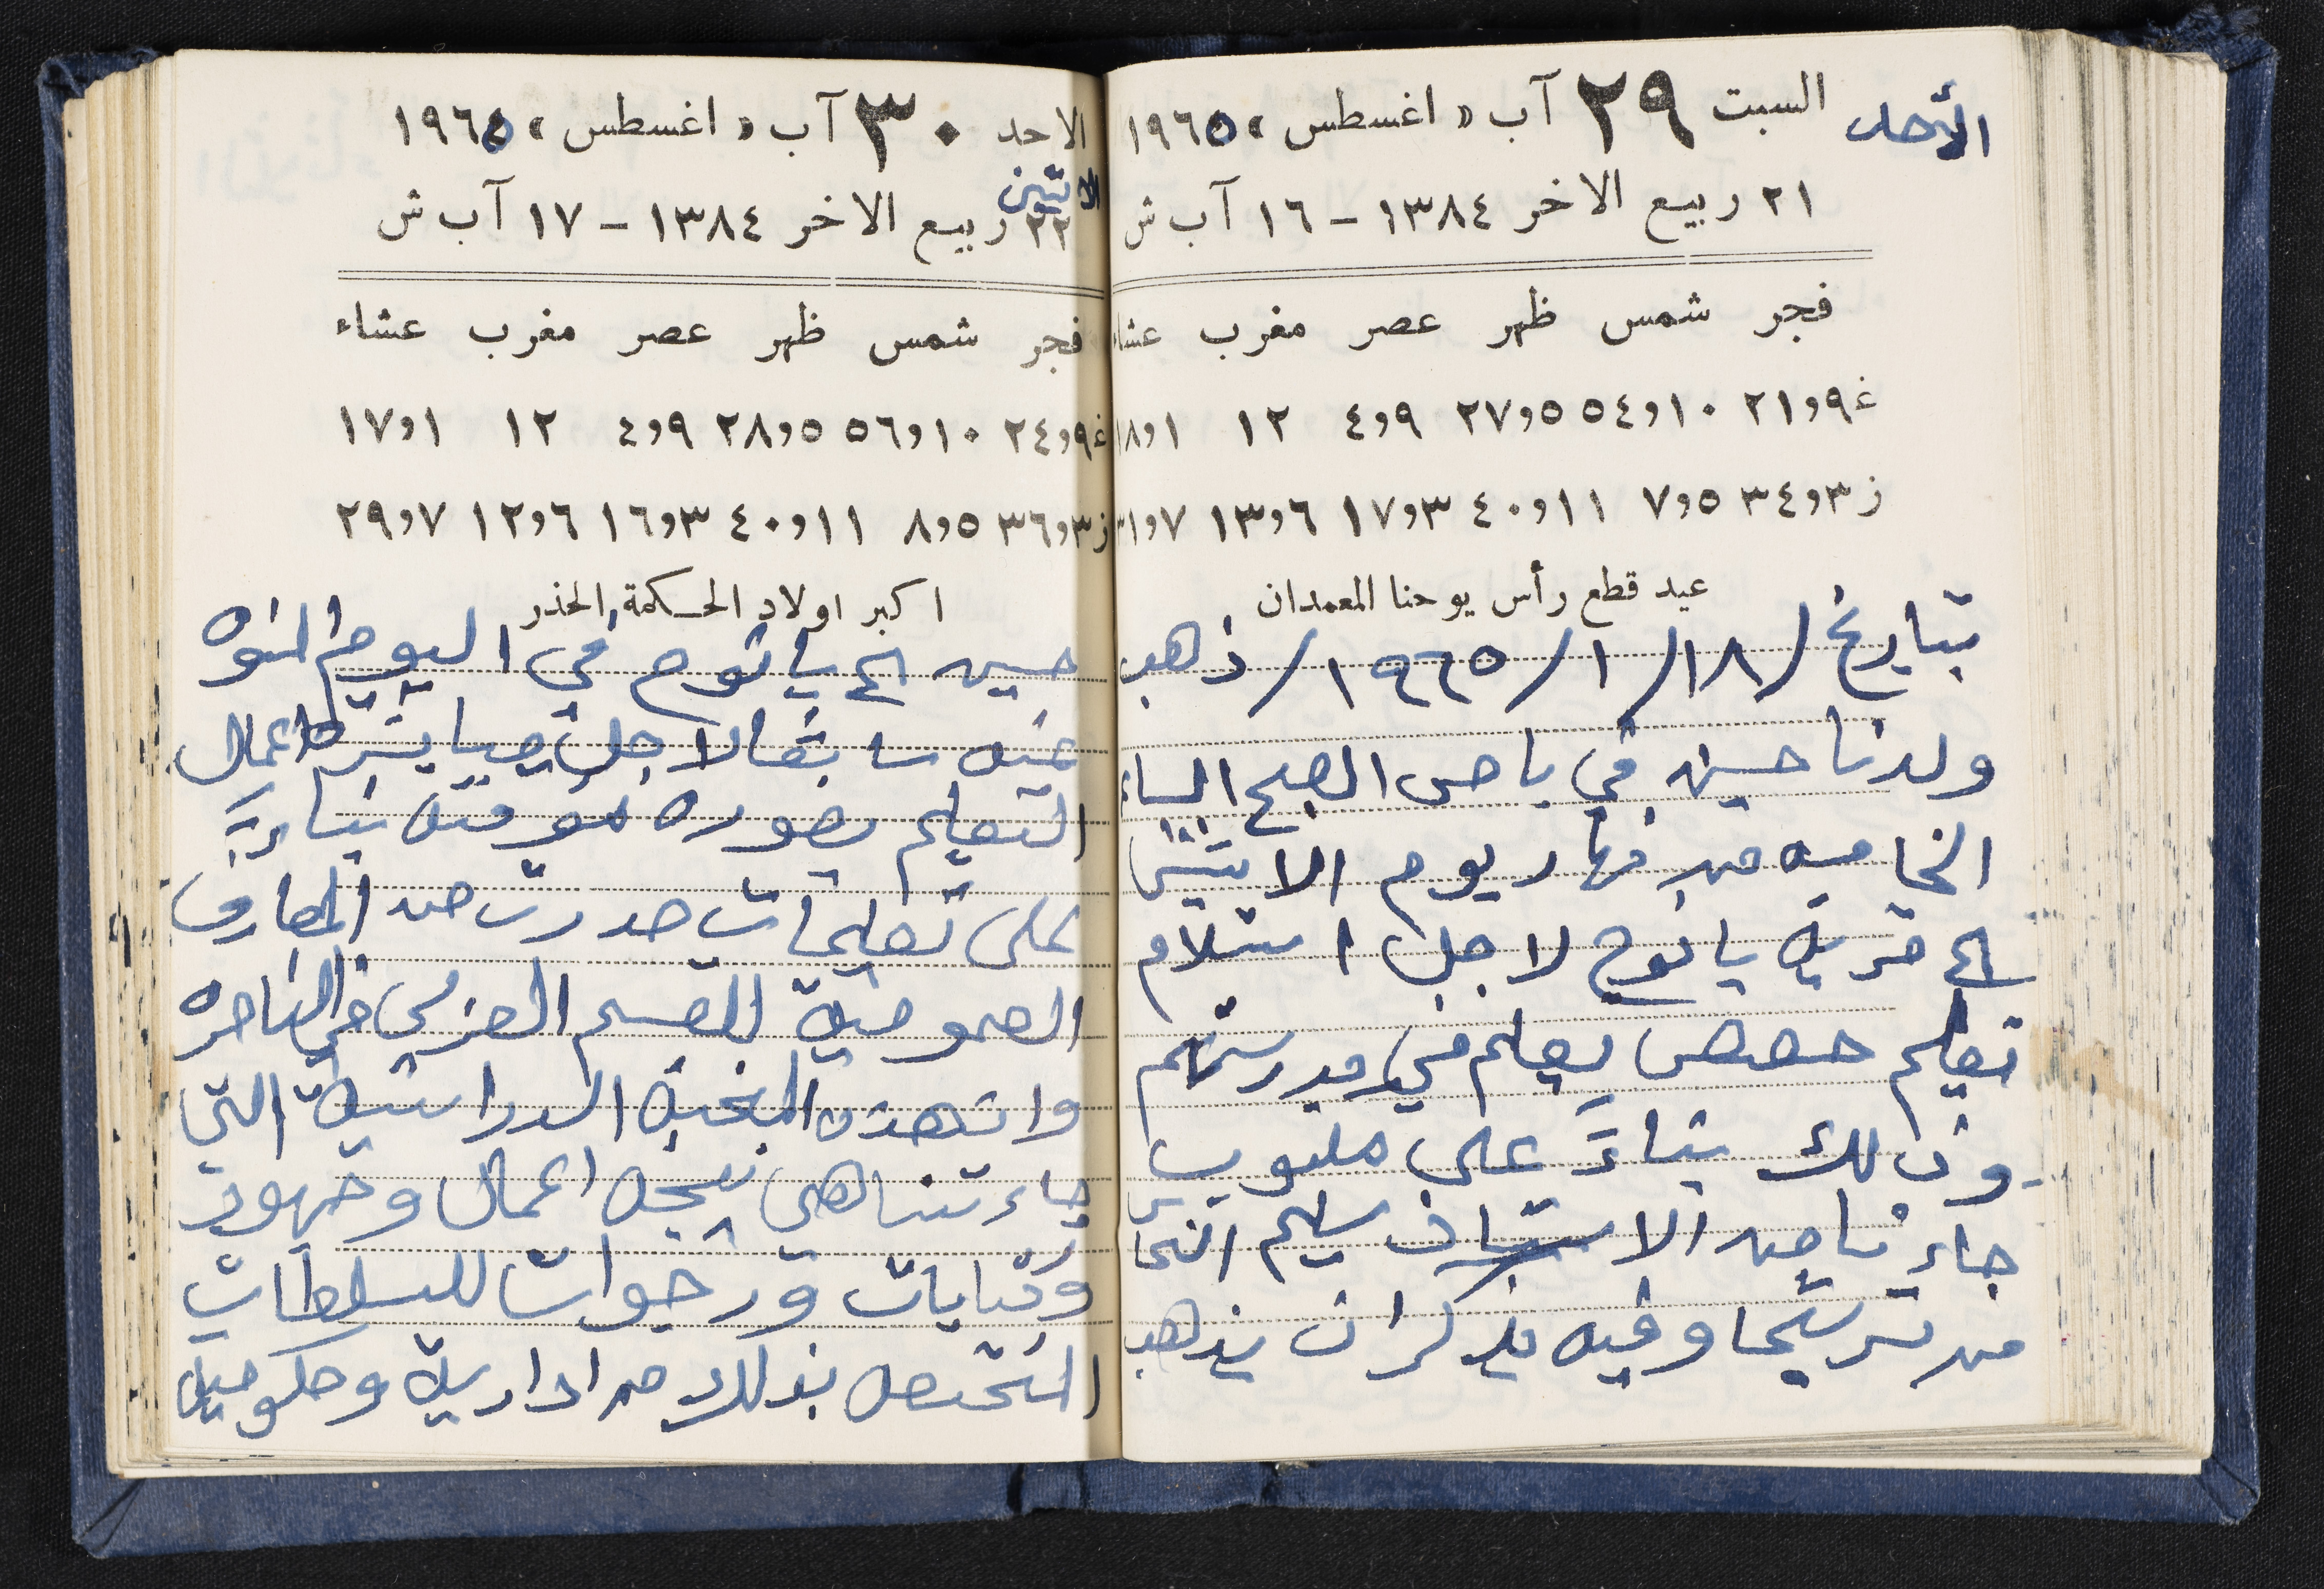 الأحد السبت ٢٩ آب « اغسطس » ١٩٦٥
٢١ ربيع الاخر ١٣٨٤ - ١٦ آب ش
فجر شمس ظهر عصر مغرب عشاء
غ ٩و٢١ ١٠و٥٤ ٥و٢٧ ٩و٤ ١٢ ١و١٨
ز ٣و٣٤ ٥و٧ ١١و٤٠ ٣و١٧ ٦و١٣ ٧و٣١
عيد قطع رأس يوحنا المعمدان
بتاريخ /١٨/ ١/ ١٩٦٥/ ذهب
ولدنا حسين في باص الصبح الساعة
الخامسه من نهار يوم الاثنين
الى قرية يانوح لاجل استلام
تعليم حصص يعلم في مدرستهم
وذلك بناءً على مكتوب
جاءنا من الاستاذ سليم
من ترشيحا وفيه يذكر ان يذهب
الاحد ٣٠ آب « اغسطس » ١٩٦٥
الاثنين
٢٢ ربيع الاخر ١٣٨٤ - ١٧ آب ش
فجر شمس ظهر عصر مغرب عشاء
غ ٩و٢٤ ١٠و٥٦ ٥و٢٨ ٩و٤ ١٢ ١و١٧
ز ٣و٣٦ ٥و٨ ١١و٤٠ ٣و١٦ ٦و١٢ ٧و٢٩
اكبر اولاد الحكمة, الحذر
حسين الى يانوح في اليوم المنوه
عنه سابقا لاجل مباشرة اعمال
التعليم بصوره موقته بناءً
على تعليمات صدرت من المعارف
العموميه للقسم العربي في الناصره
وان هذه المنحه الدراسية التي
جاءتنا هي نتيجه اعمال وجهود
وكتابات ورجوات للسلطات
المختصه بذلك من ادارية وحكوميه